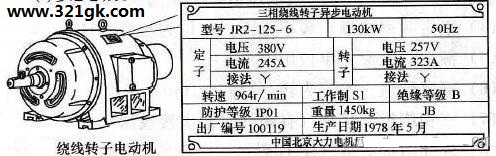 www.321gk.com
绕线转子电动机
三相绕线转子异步电动机
型号 JR2-125-6 130kW 50Hz
定子 电压 380V 转子 电压 257V
电流 245A 电流 323A
接法 Y 接法 Y
转速 964r/min 工作制 S1 绝缘等级 B
防护等级 IP01 重量 1450kg JB
出厂编号 100119 生产日期 1978 年 5 月
中国北京大力电机厂